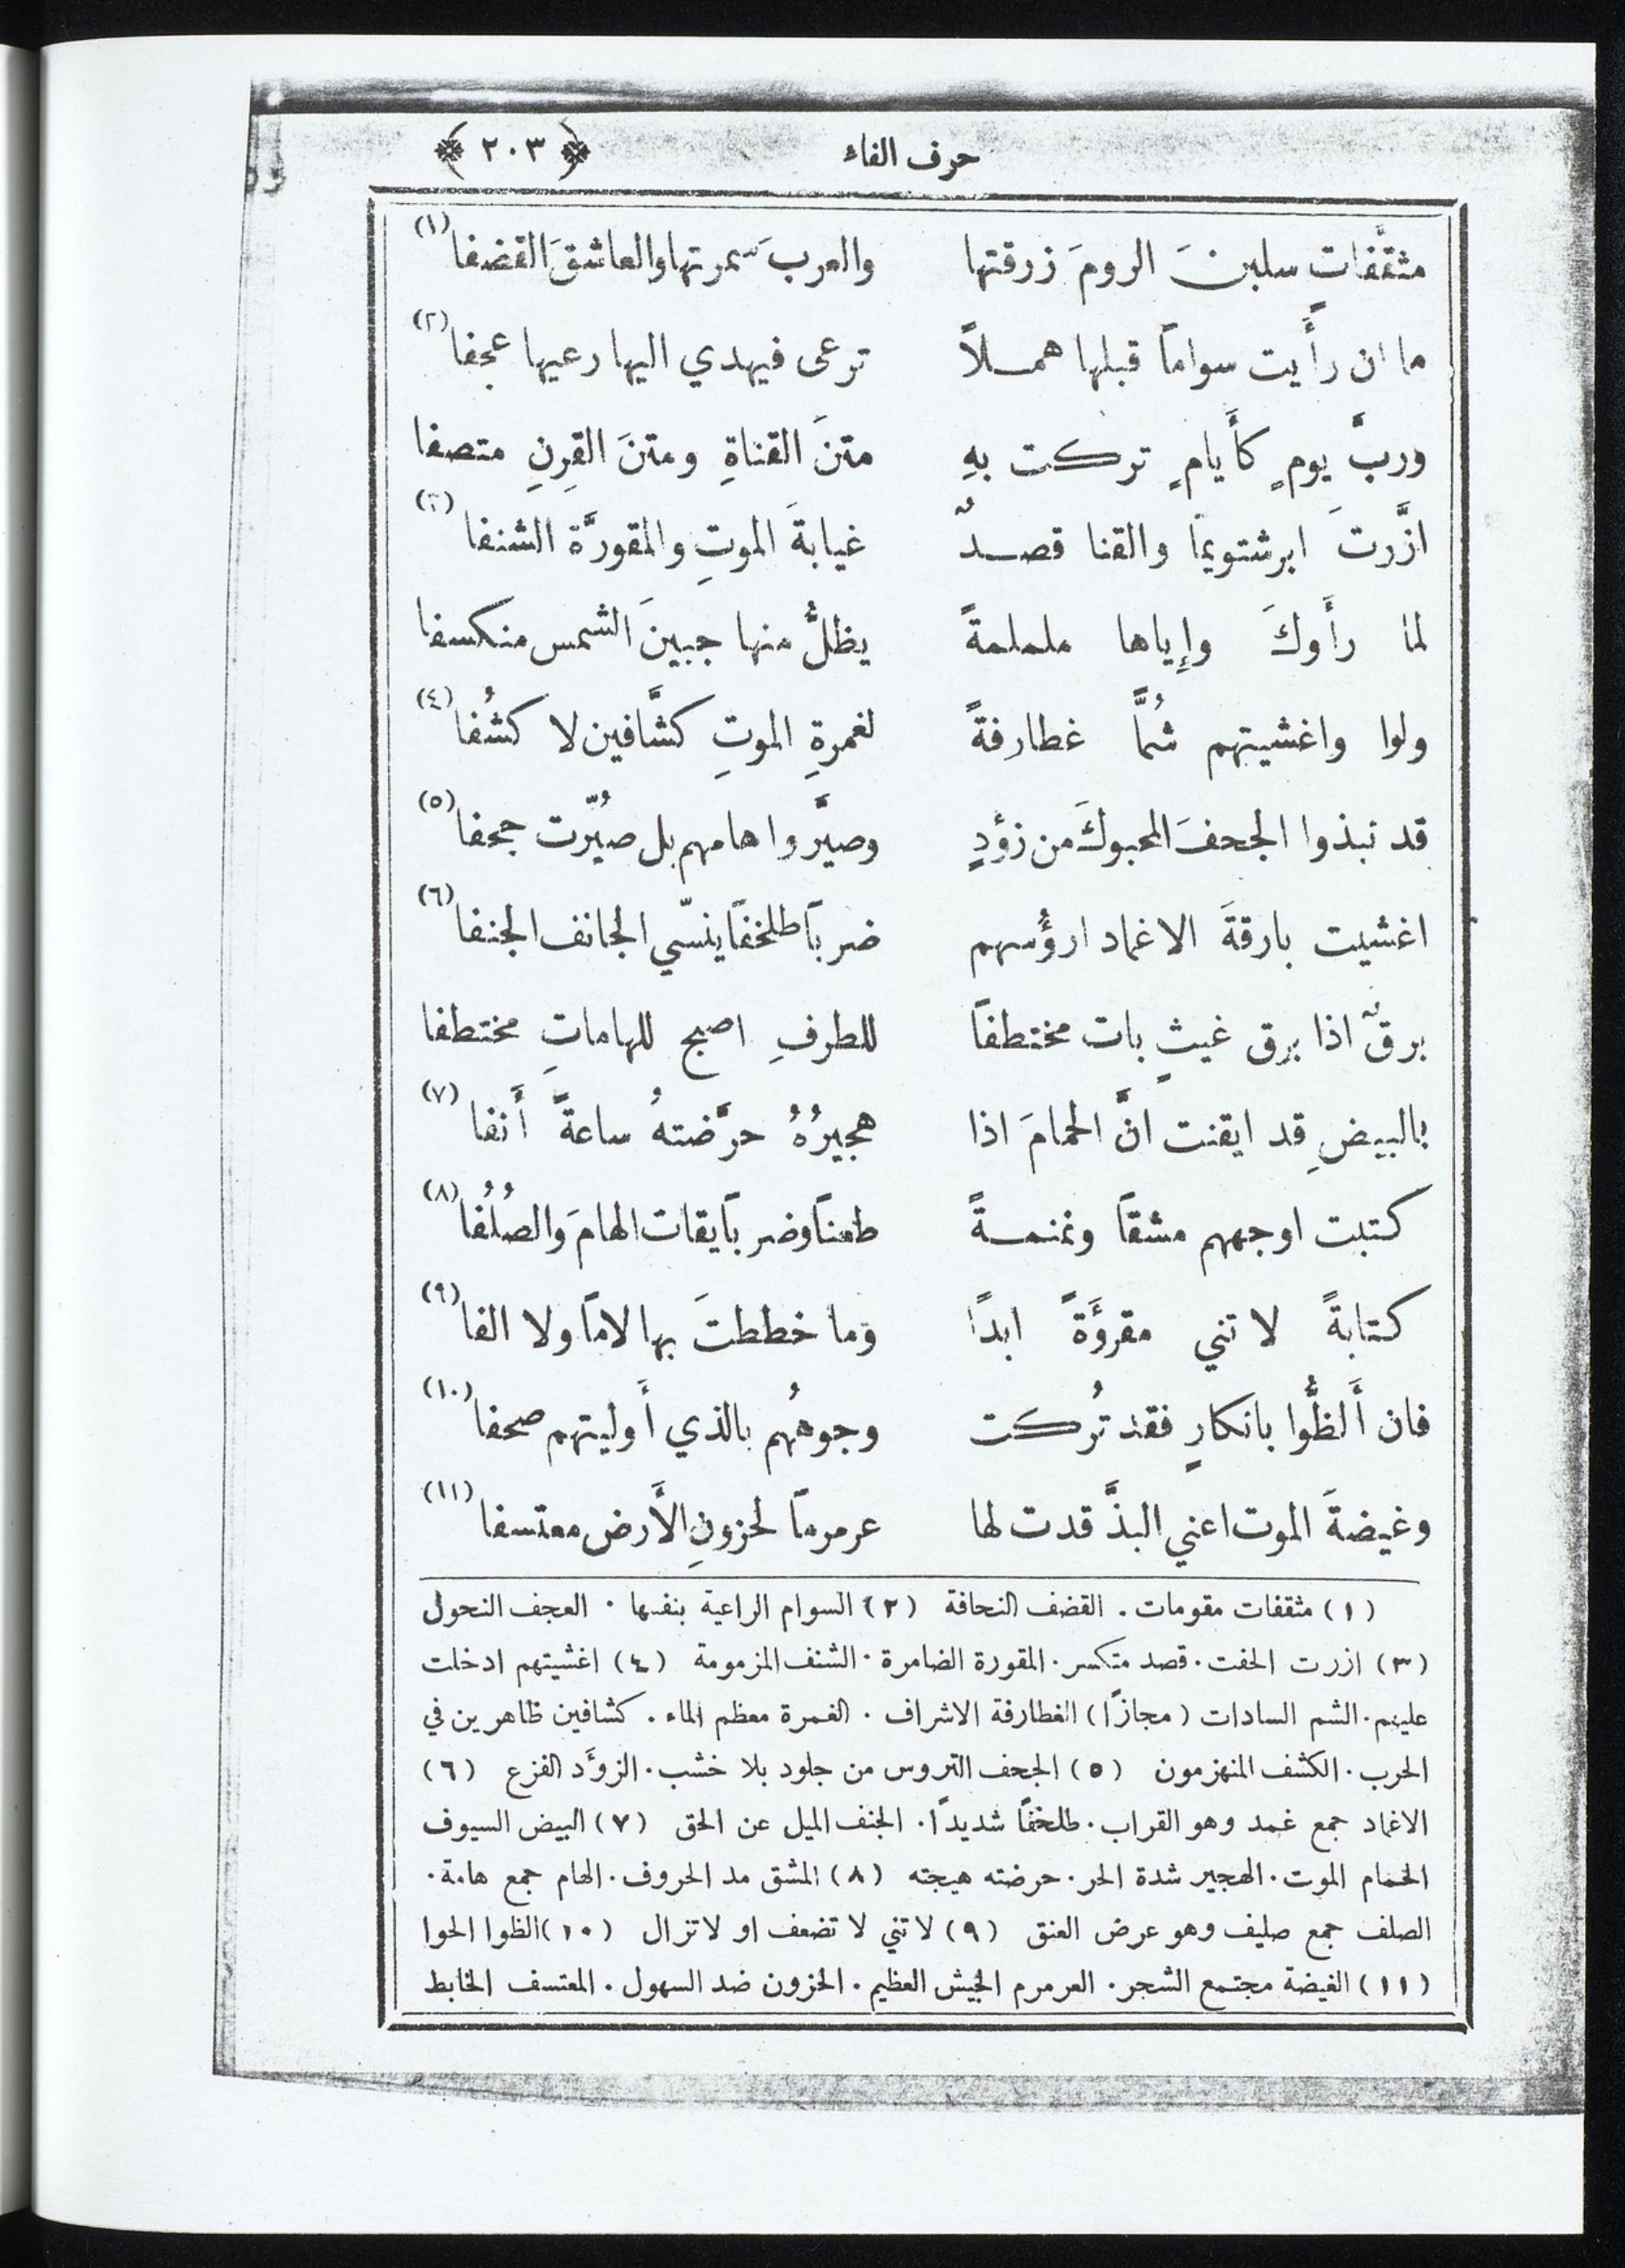 حرف الفاء ﴿ ٢٠٣ ﴾
مثقَّفاتٍ سلبنَ الرومَ زرقتها والعربَ سمرتها والعاشقَ القضفا (١)
ما ان رأَيت سواماً قبلها همـلاً ترعى فيهدي اليها رعيها عجفا (٢)
وربَّ يومٍ كأَيامٍ تركت بهِ متنَ القناةِ ومتنَ القِرنِ متصفا
ازَّرتَ ابرشتويماً والقنا قصدٌ غيابةَ الموتِ والمقورَّة الشنفا (٣)
لما رأَوكَ وإِياها ململمةً يظلُّ منها جبينَ الشمس منكسفا
ولوا واغشيتهم شُمًّا غطارفةً لغمرةِ الموتِ كشَّافين لا كشُفا (٤)
قد نبذوا الجحفَ المحبوكَ من زؤدٍ وصيَّروا هامهم بل صُيّرت جحفا (٥)
اغشيت بارقةَ الاغماد ارؤُسهم ضرباً طلخفاً ينسّي الجانف الجنفا (٦)
برقٌ اذا برق غيثٍ بات مختطفاً للطرفِ اصبح للهاماتِ مختطفا
بالبيضِ قد ايقنت انَّ الحمامَ اذا هجيرُهُ حرَّضتهُ ساعةً أَنفا (٧)
كتبت اوجههم مشقاً ونمنمـةً طعناً وضرباً يقات الهامَ والصُلُفا (٨)
كتابةً لا تني مقروَّةً ابدًا وما خططتَ بها لاماً ولا الفا (٩)
فان أَلظُّوا بانكارٍ فقد تُركت وجوههُم بالذي أَوليتهم صحفا (١٠)
وغيضةَ الموت اعني البذَّ قدت لها عرمرماً لحزونِ الأَرض معتسفا (١١)
(١) مثقفات مقومات . القضف النحافة (٢) السوام الراعية بنفسها . العجف النحول
(٣) ازرت الحفت . قصد متكسر . المقورة الضامرة . الشنف المزمومة (٤) اغشيتهم ادخلت
عليهم . الشم السادات (مجازًا) الغطارفة الاشراف . الغمرة معظم الماء . كشافين ظاهرين في
الحرب . الكشف المنهزمون (٥) الجحف التروس من جلود بلا خشب . الزؤَد الفزع (٦)
الاغماد جمع غمد وهو القراب . طلخفاً شديدًا . الجنف الميل عن الحق (٧) البيض السيوف
الحمام الموت . الهجير شدة الحر . حرضته هيجته (٨) المشق مد الحروف . الهام جمع هامة .
الصلف جمع صليف وهو عرض العنق (٩) لا تني لا تضعف او لا تزال (١٠) الظوا الحوا
(١١) الغيضة مجتمع الشجر . العرمرم الجيش العظيم . الحزون ضد السهول . المعتسف الخابط